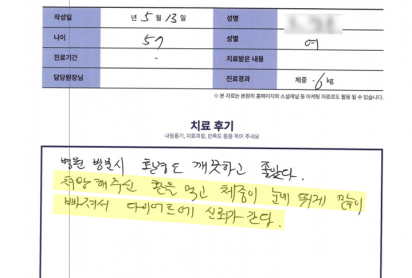 작성일 년 5월 13일 성명
나이 57 성별 여
진료기간 - 진료받은 내용
담당원장님 진료경과 체중 -6kg
※ 본 자료는 본원의 홈페이지와 소셜채널 등 마케팅 자료로도 활용 될 수 있습니다.
치료 후기
내원동기, 치료과정, 만족도 등을 적어 주세요
병원 방문시 환경도 깨끗하고 좋았다.
처방해주신 환을 먹고 체중이 눈에 띄게
빠져서 다이어트에 신뢰가 간다.